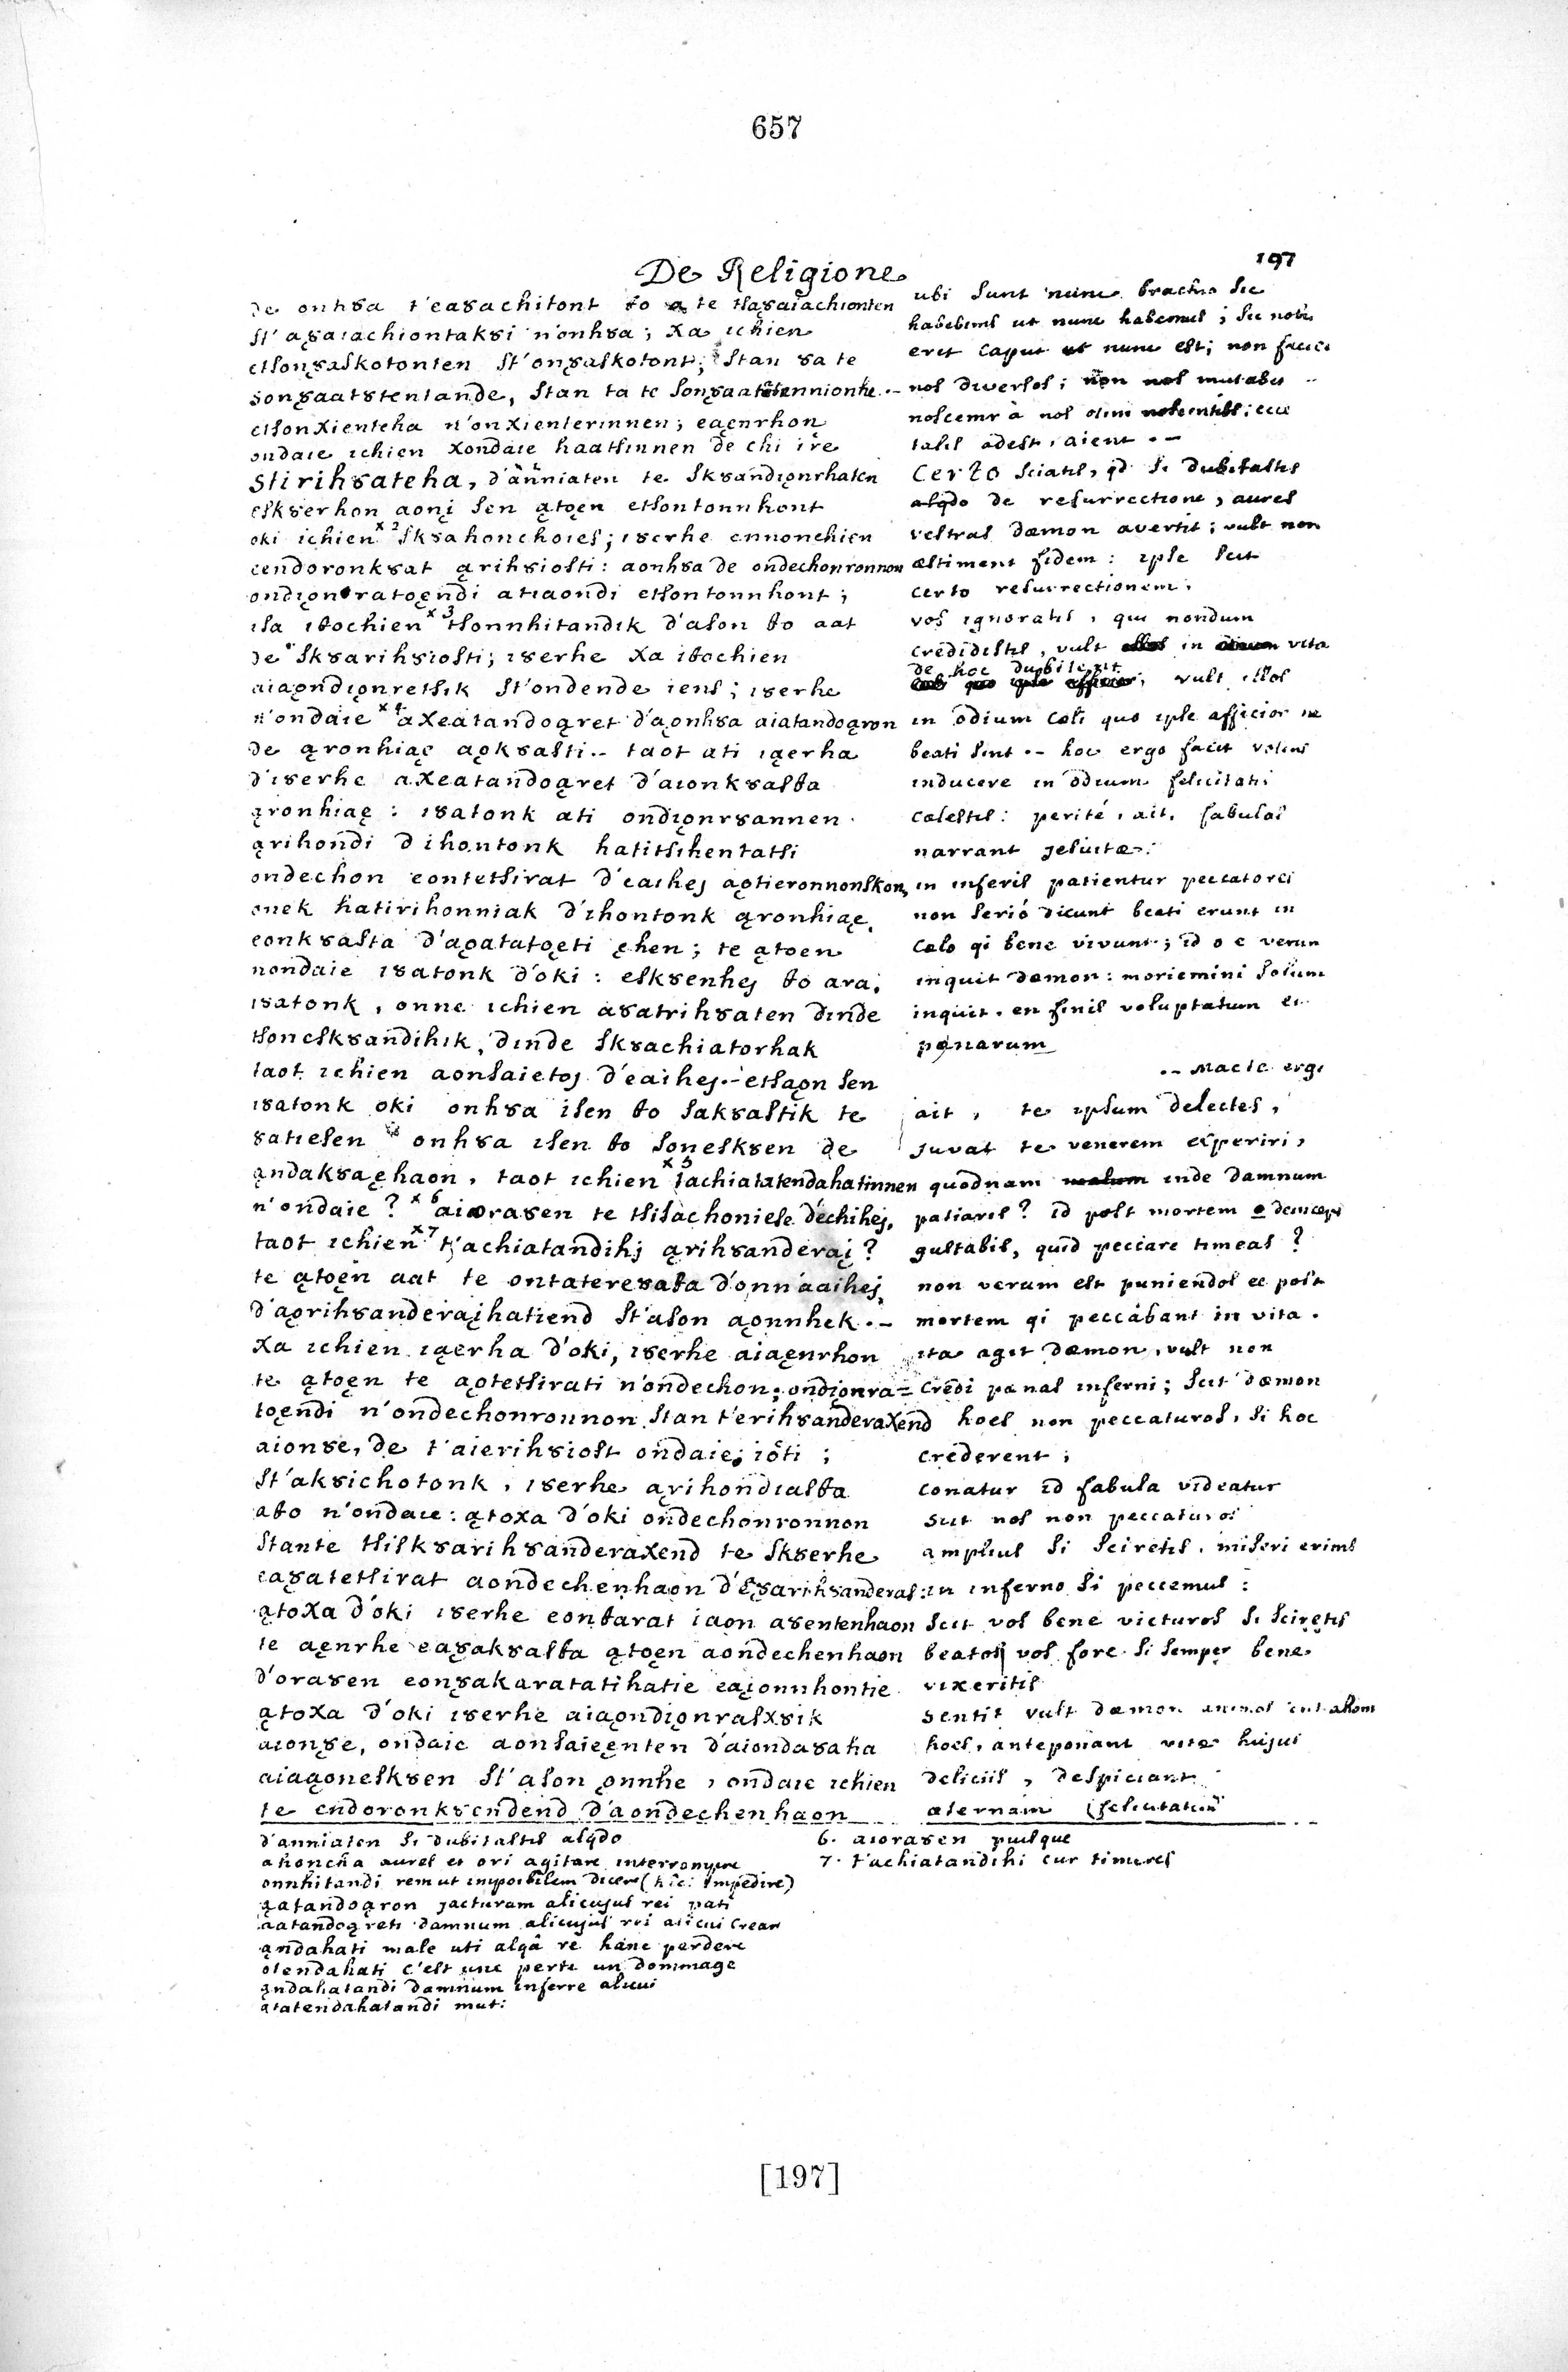 657
De Religione
197
de onh8a t'ea8achitont to a te tsa8aiachionten
st' a8aiachiontak8i n'onh8a; χa ichien
etson8askotonten st'on8askotont; stan 8a te
son8aat8tentande, stan ta te son8aat8tennionhe .-
etsonχienteha n'onχienterinnen; eaęnrhon
ondaie ichien χondaie haatsinnen de chi ire
stirih8ateha, d'anniaten te sk8andiǫnrhaten
esk8erhon aonį sen ątoęn etsontonnhont
oki ichien x2 sk8ahonchoies; i8erhe ennonchien
iendoronk8at ąrih8iosti: aonh8a de ondechonronnon
ondiǫnratoęndi atiaondi etsontonnhont;
isa itochien x3 tsonnhitandik d'ason to aat
de sk8arih8iosti; i8erhe χa itochien
aiaǫndiǫnretsik st'ondende iens; i8erhe
n'ondaie x4 aχeatandoąret d'aǫnh8a aiatandoąron
de ąronhiaę aǫk8asti .- taot ati iąerha
d'i8erhe aχeatandoąret d'aionk8asta
ąronhiaę: i8atonk ati ondiǫnr8annen
ąrihondi d'ihontonk hatitsihentatsi
ondechon eontetsirat d'eaihej aǫtieronnonskon,
onek hatirihonniak d'ihontonk ąronhiaę
eonk8asta d'aǫatatoęti ęhen; te ątoen
nondaie i8atonk d'oki: esk8enhej to ara,
i8atonk, onne ichien a8atrih8aten dinde
tsonesk8andihik, dinde sk8achiatorhak
taot ichien aonsaietoj d'eaihej .- etsaǫn sen
i8atonk oki onh8a isen to sak8astik te
8atiesen onh8a isen to sonesk8en de
ąndak8aęhaon, taot ichien x5 tachiatatendahatinnen
n'ondaie? x6 aiora8en te tsisachoniese dechihej,
taot ichien x7 t'achiatandihj ąrih8anderaį?
te ątoęn aat te ontatere8ata d'onn'aaihej,
d'aǫrih8anderaįhatiend st'ason aǫnnhek .-
χa ichien iąerha d'oki, i8erhe aiaęnrhon
te ątoęn te aǫtetsirati n'ondechon; ondiǫnra=
toęndi n'ondechonronnon stan t'erih8anderaχend
aion8e, de t'aierih8iost ondaie ioti;
st'ak8ichotonk, i8erhe ąrihondiasta
ato n'ondaie: ątoχa d'oki ondechonronnon
stante tsisk8arih8anderaχend te sk8erhe
ea8atetsirat aondechenhaon d'e8arih8anderas:
ątoχa d'oki i8erhe eontarat iaon a8entenhaon
te aęnrhe ea8ak8asta ątoęn aondechenhaon
d'ora8en eon8akaratatihatie eaionnhontie
ątoχa d'oki i8erhe aiaǫndiǫnrasχ8ik
aion8e, ondaie aonsaieęnten d'aionda8aha
aiaąonesk8en st'ason ǫnnhe, ondaie ichien
te endoronk8endend d'aondechenhaon
ubi sunt nunc brachia sic
habebimus ut nunc habemus; sic nobis
erit caput ut nunc est; non faciet
nos diversos; non nos mutabit ..
noscemur à nos olim noscentibus; ecce
talis adest, aient .-
Certo sciatis, qd si dubitastis
alqdo de resurrectione, aures
vestras dæmon avertit; vult non
æstiment fidem: ipse scit
certo resurrectionem.
vos ignoratis, qui nondum
credidistis, vult in vita
de hoc dubitent
vult illos
in odium cœli quo ipse afficior ne
beati sint .- hoc ergo facit volens
inducere in odium felicitatis
cælestis: perité, ait, fabulas
narrant jesuitæ:
in inferis patientur peccatores
non serió dicunt beati erunt in
Cælo qi bene vivunt; id o e verum
inquit dæmon: moriemini solum
inquit. en finis voluptatum et
pœnarum
.- Macte ergo
ait, te ipsum delectes,
juvat te venerem experiri,
quodnam inde damnum
patiaris? id post mortem o deinceps
gustabis, quid peccare timeas?
non verum est puniendos ee post
mortem qi peccabant in vita.
ita agit dæmon, vult non
credi pœnas inferni; scit dæmon
hoes non peccaturos, si hoc
crederent;
conatur id fabula videatur
scit nos non peccaturos
amplius si sciretis, miseri erimus
in inferno si peccemus:
scit vos bene victuros si sciretis
beatos vos fore si semper bene
vixeritis
sentit vult dæmon
hoes, anteponant vitæ hujus
deliciis, despiciant
æternam felicitatem
d'anniaten si dubitastis alqdo
ahoncha aures et ori agitare interrompre
onnhitandi rem ut impossibilem dicere (hîc: impedire)
ąatandoąron jacturam alicujus rei pati
aatandoąreti damnum alicujus rei alicui creare
ąndahati male uti alqâ re hanc perdere
otendahati c'est une perte un dommage
ąndahatandi damnum inferre alicui
atatendahatandi mut:
6. aiora8en puisque
7. t'achiatandihi cur timeres
[197]